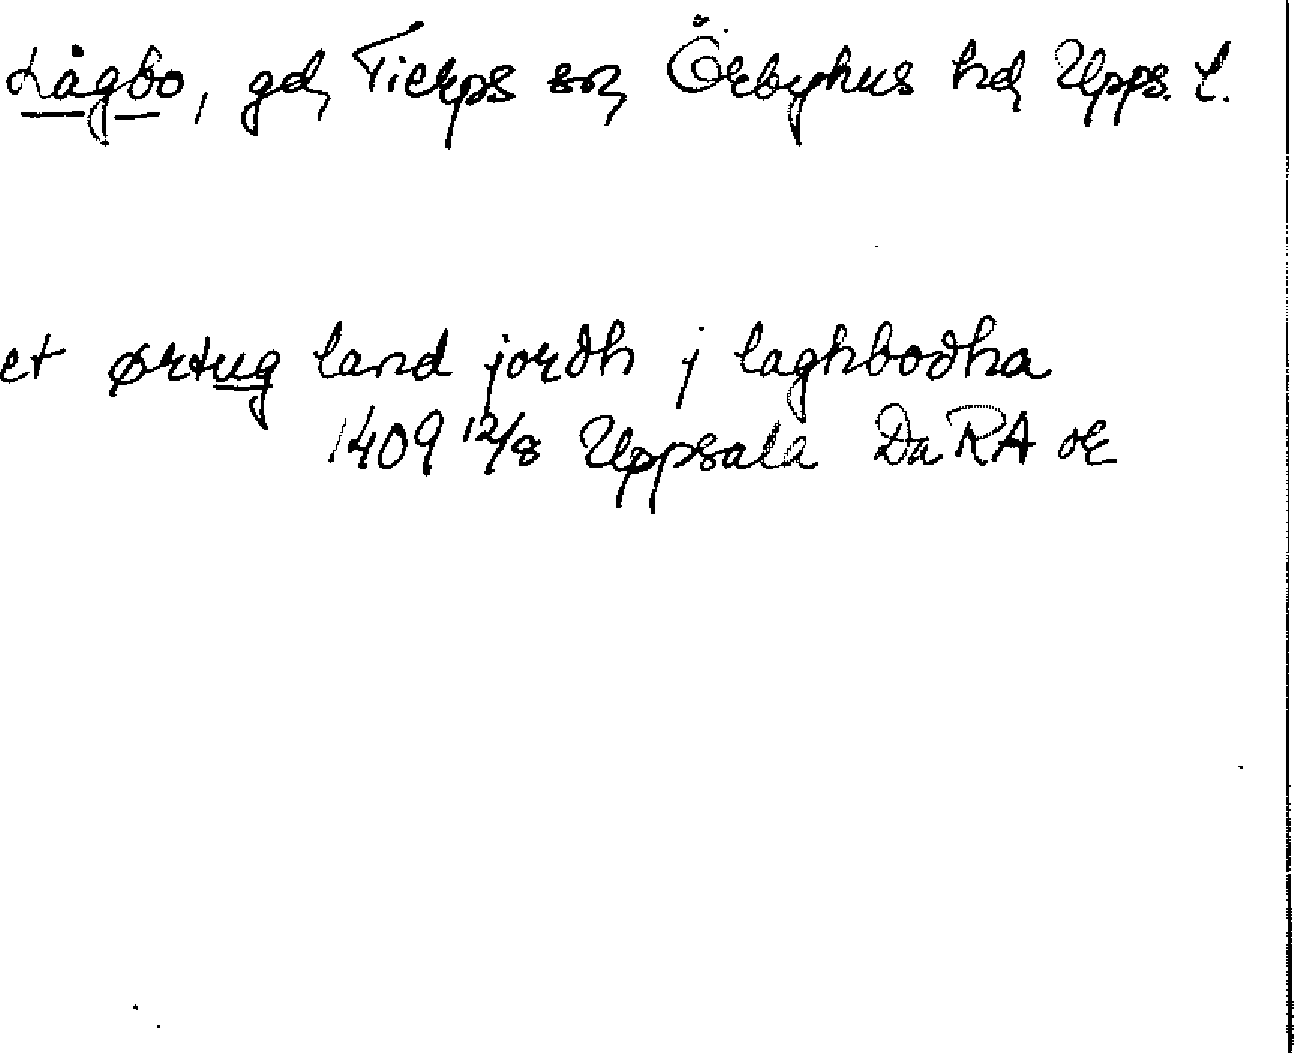 Lågbo, gd, Tierps sn, Örbyhus hd, Upps. l.
et ørtug land jordh j laghbodha
1409 12/8 Uppsala Da RA or